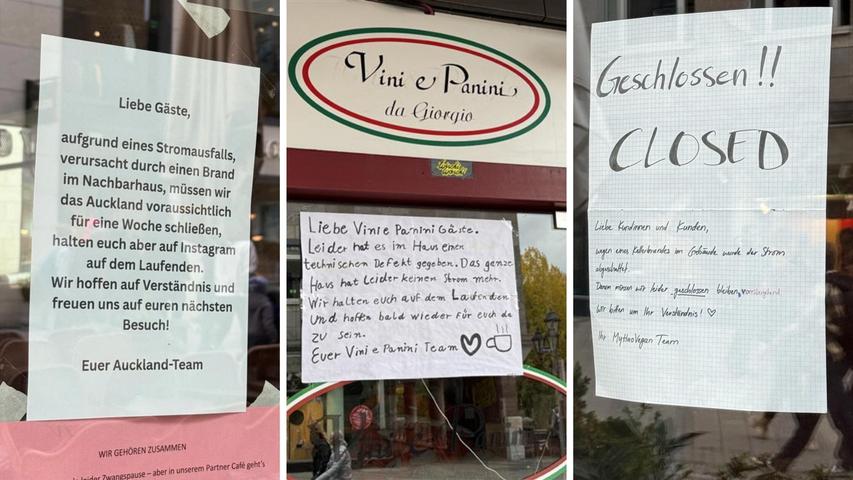 Liebe Gäste,
aufgrund eines Stromausfalls,
verursacht durch einen Brand
im Nachbarhaus, müssen wir
das Auckland voraussichtlich
für eine Woche schließen,
halten euch aber auf Instagram
auf dem Laufenden.
Wir hoffen auf Verständnis und
freuen uns auf euren nächsten
Besuch!
Euer Auckland-Team
WIR GEHÖREN ZUSAMMEN
leider Zwangspause – aber in unserem Partner Café geht's
Vini e Panini
da Giorgio
Liebe Vini e Panini Gäste.
Leider hat es im Haus einen
technischen Defekt gegeben. Das ganze
Haus hat Leider keinen Strom mehr.
Wir halten euch auf dem Laufenden
und hoffen bald wieder für euch da
zu sein.
Euer Vini e Panini Team
Geschlossen!!
CLOSED
Liebe Kundinnen und Kunden,
wegen eines Kellerbrandes im Gebäude wurde der Strom
abgeschaltet.
Darum müssen wir leider geschlossen bleiben, vorübergehend.
Wir bitten um Ihr Verständnis!
Ihr MythosVegan Team